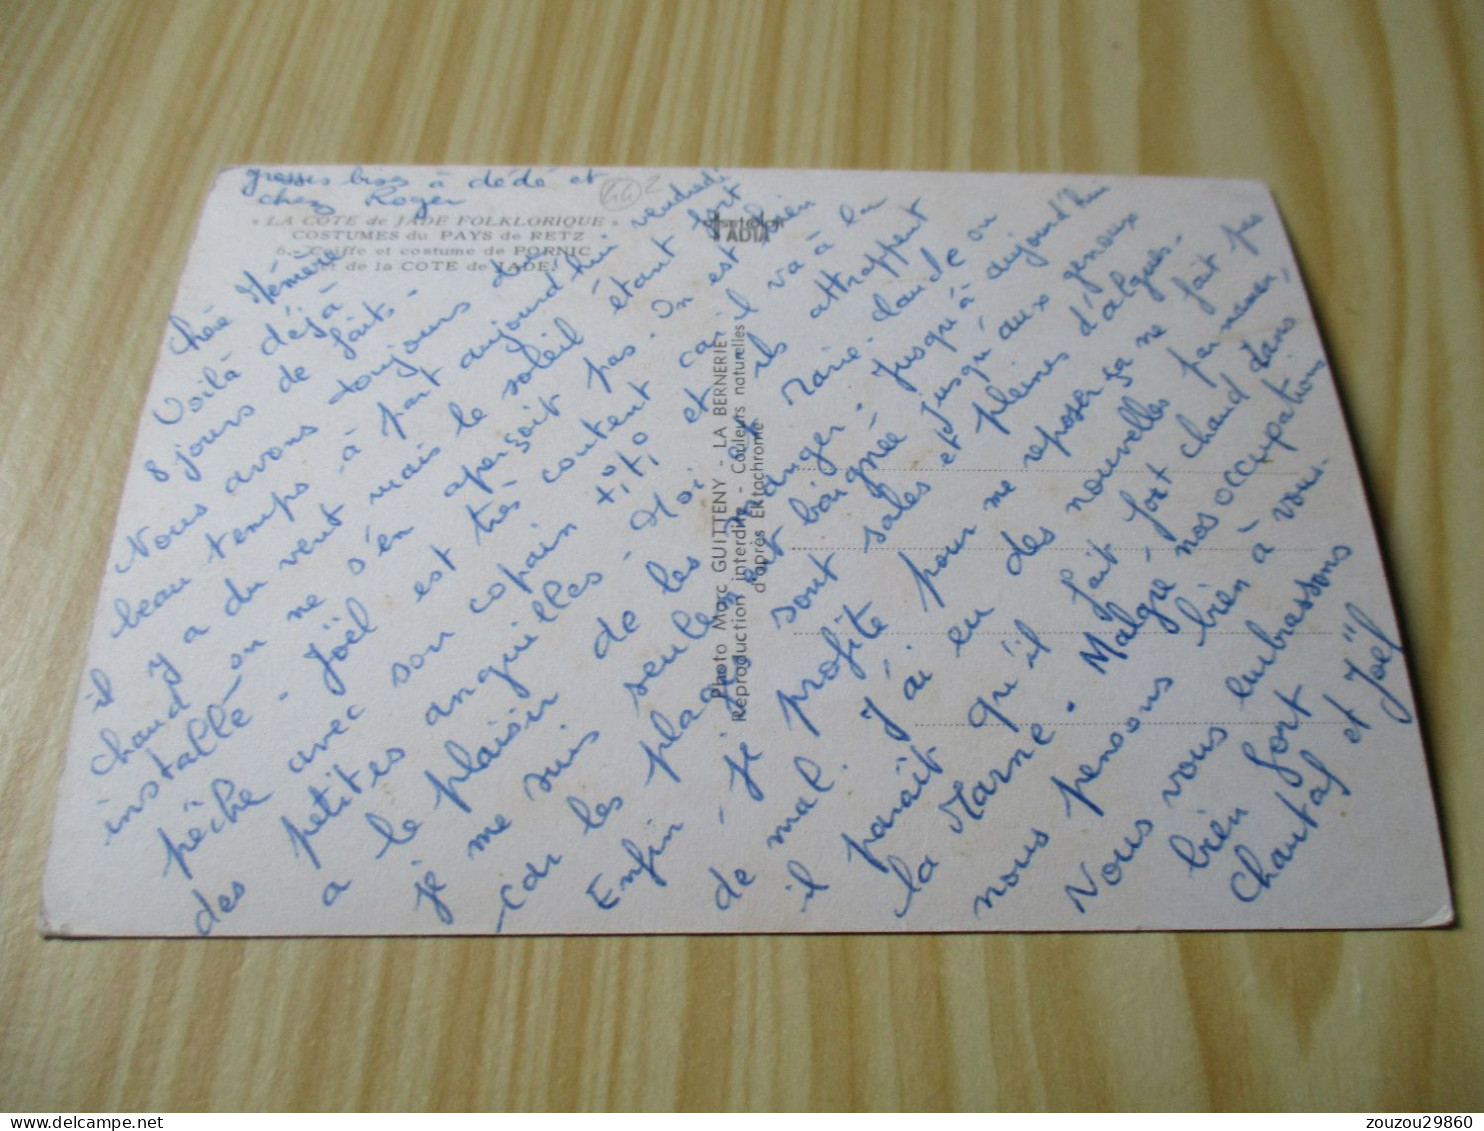 grosses bises à dédé et
chez Roger
442
« LA COTE de JADE FOLKLORIQUE »
COSTUMES du PAYS de RETZ
6. - Coiffe et costume de PORNIC
et de la COTE de JADE.
ADIA
Photo Marc GUITTENY - LA BERNERIE
Reproduction interdite - Couleurs naturelles
d'après Ektachrome
Chère Mémère
Voilà déjà
8 jours de fait.
Nous avons toujours du
beau temps - à part aujourd'hui vendredi
il y a du vent mais le soleil étant fort
chaud on ne s'en aperçoit pas. On est bien
installé - Joël est très content car il va à la
pêche avec son copain titi et ils attrappent
des petites anguilles. Moi et Marie-claude on
a le plaisir de les manger - jusqu'à aujourd'hui
je me suis seulement baignée jusqu'aux genoux
car les plages sont sales et pleines d'algues.
Enfin - je profite pour me reposer ça ne fait pas
de mal. J'ai eu des nouvelles par maman,
il paraît qu'il fait fort chaud dans
la Marne. Malgré nos occupations
nous pensons bien à vous.
Nous vous embrassons
bien fort
Chantal et Joël
zouzou29860